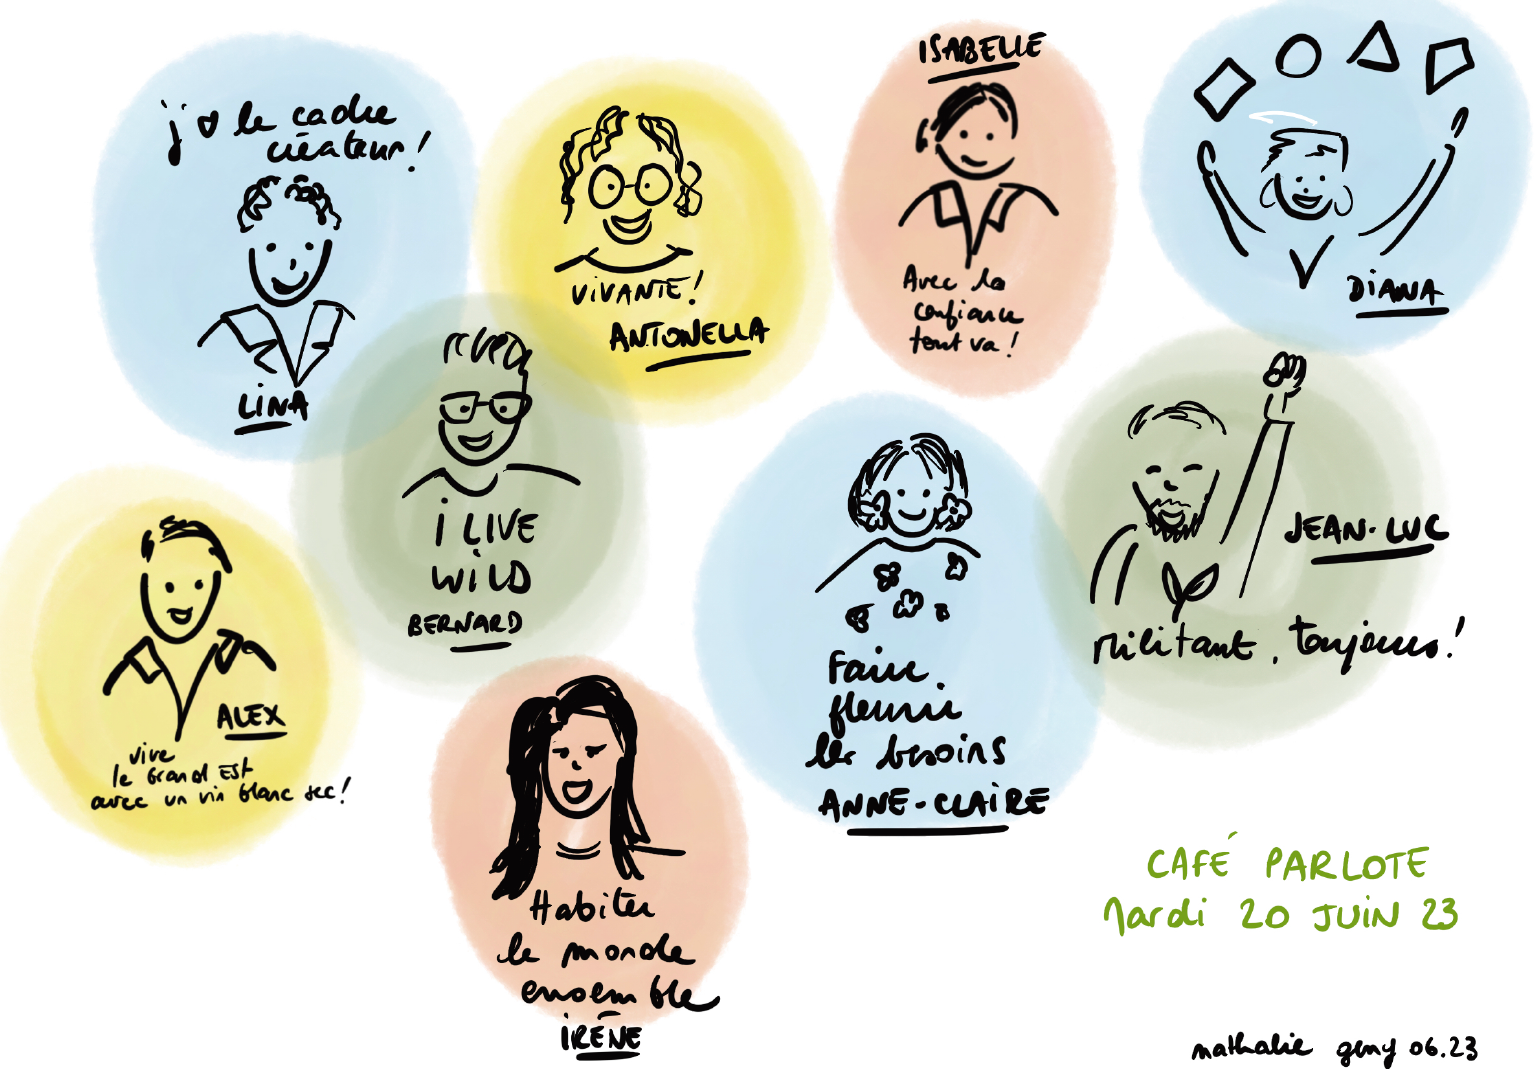 j'♥ le cadre
créateur!
LiNA
ViVANTE!
ANTONELLA
ISABELLE
Avec la
confiance
tout va!
DiANA
i LIVE
WiLD
BERNARD
JEAN-LUC
militant, toujours!
ALEX
vive
le Grand EST
avec un vin blanc sec!
Faire
fleurir
les besoins
ANNE-CLAiRE
Habiter
le monde
ensemble
iRÈNE
CAFÉ PARLOTE
Mardi 20 JUiN 23
nathalie geny 06.23